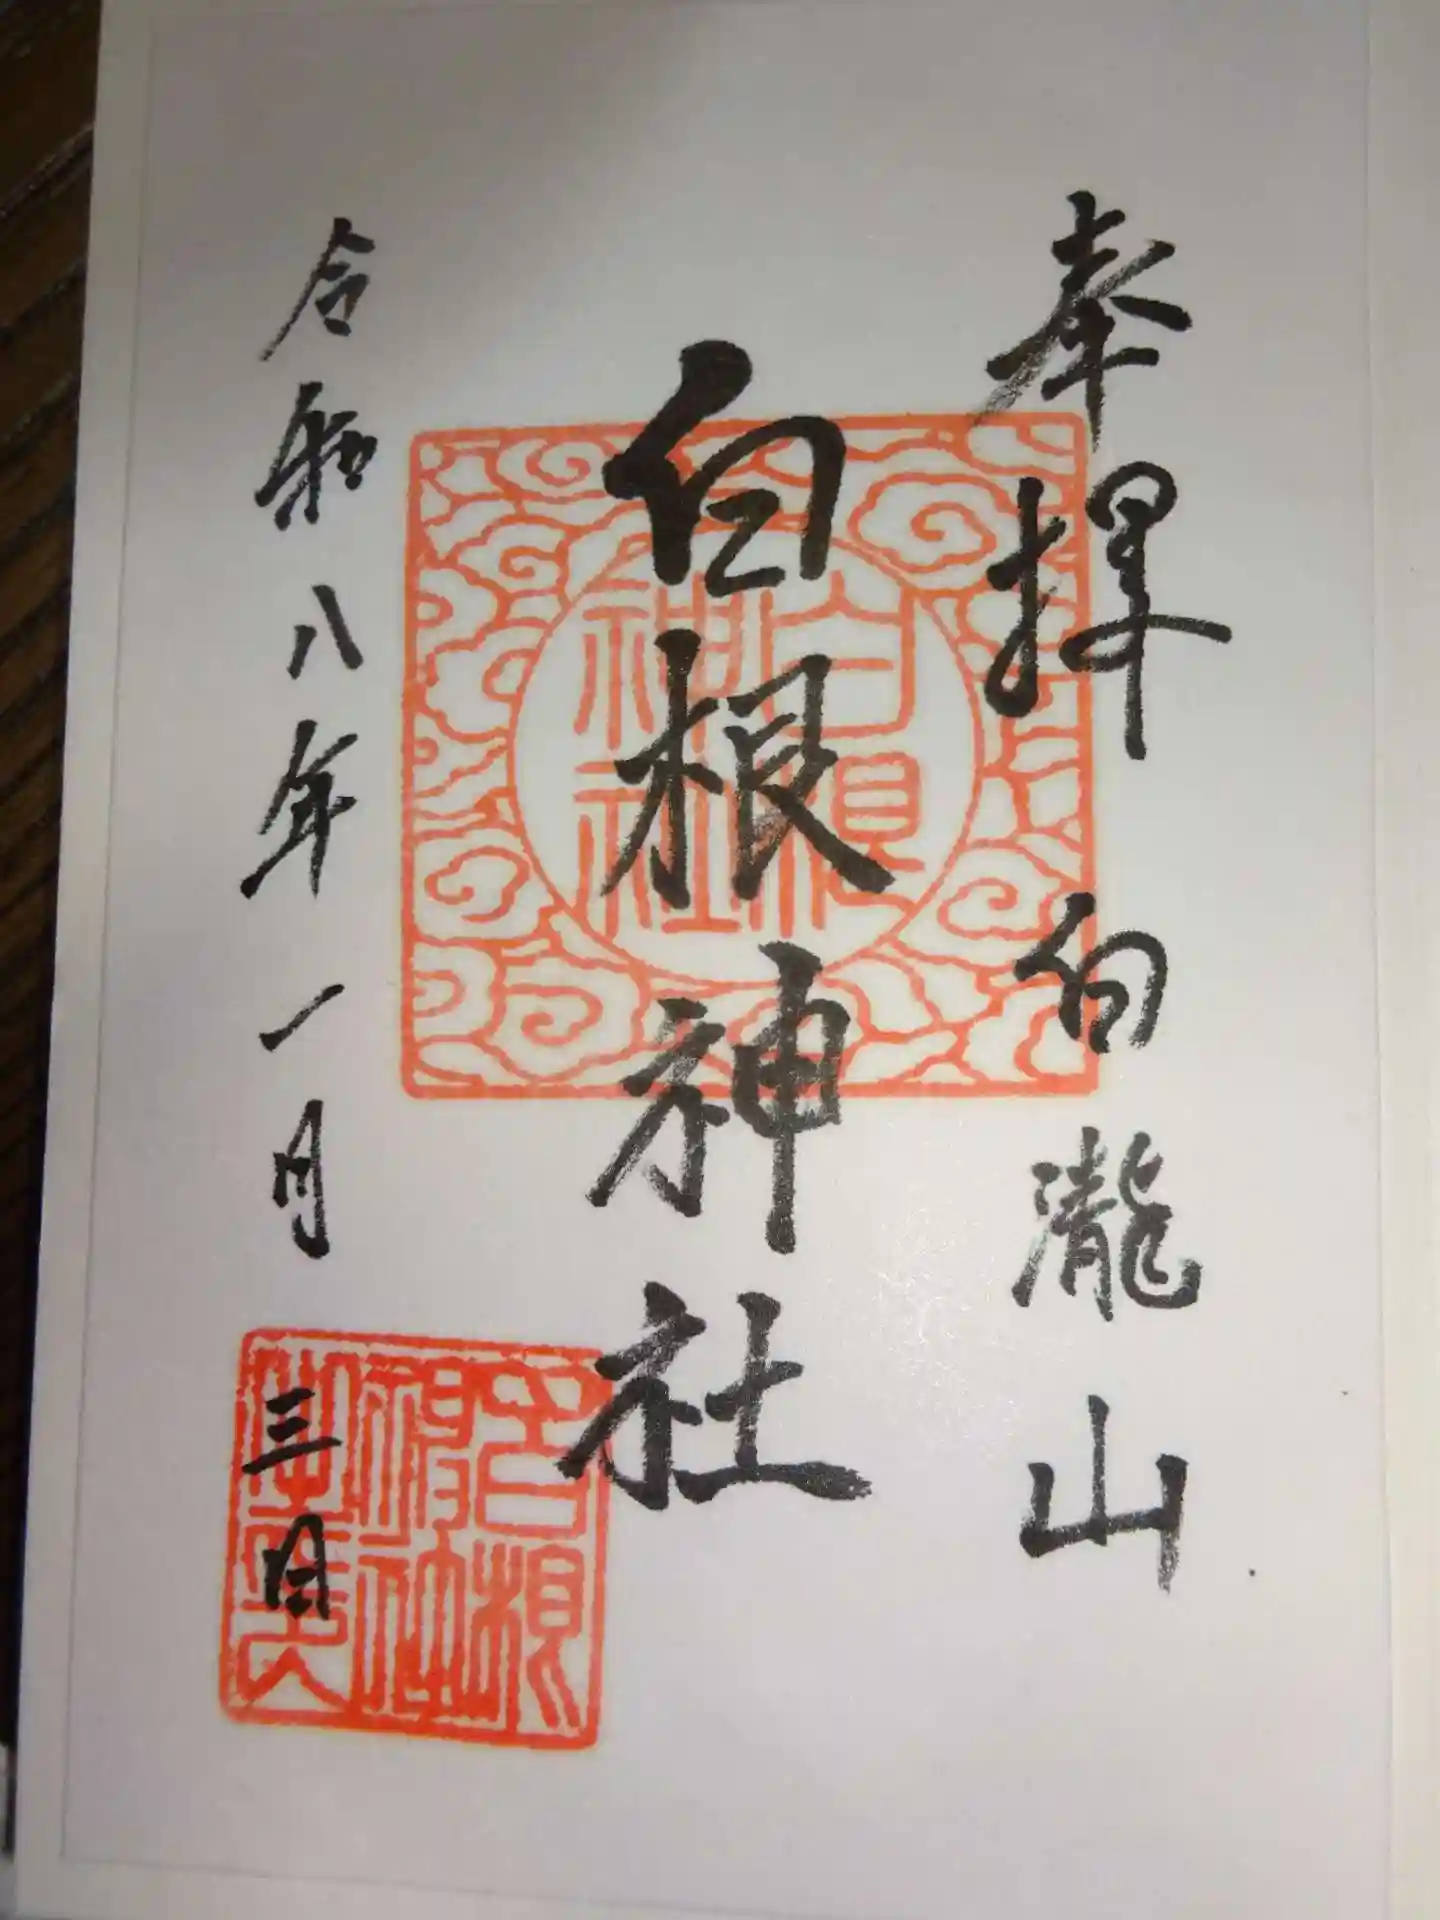 奉拝 白瀧山
白根神社
令和八年一月三日
白根神社